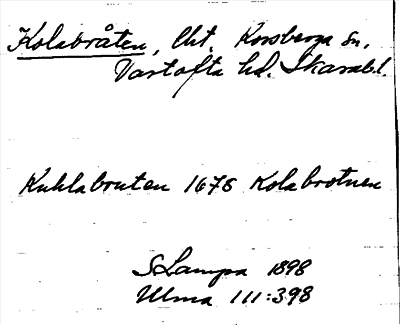 Kolabråten, Cht. Korsberga sn.
Vartofta hd. Skarab.l.
Kuhlabruten 1678 Kolabrotnen
S Lampa 1898
Ulma 111:398